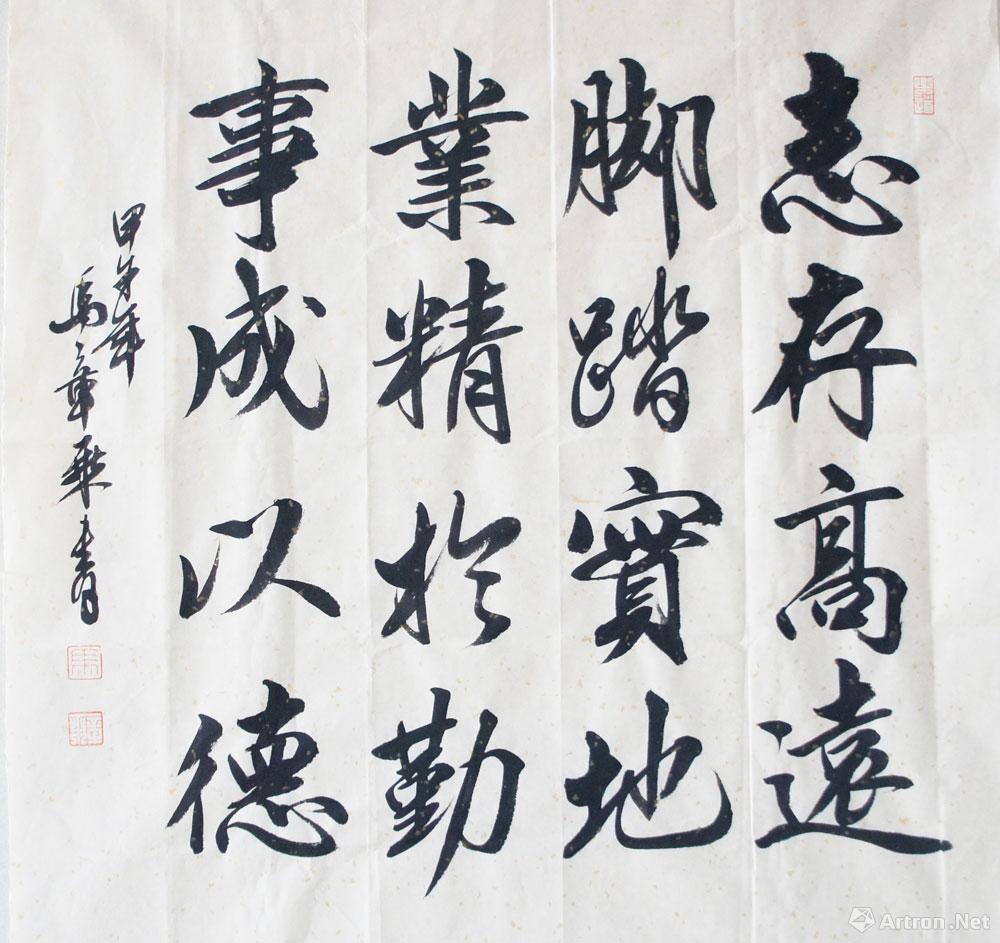 志存高遠
脚踏實地
業精於勤
事成以德
甲午年
馬章乘書
Artron.Net